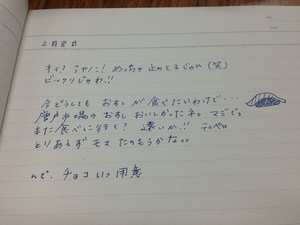 2月8日
オイ！アヤノニ！めっちゃ止めてるじゃん(笑)
ビックリじゃわ!!
今どうしても おすしが食べたいわけで…
唐戸市場の おすし おいしかったネ。マジで。
また食べに行く？遠いか!! テヘペロ
とりあえず モス たのもうかなっ。
んで、チョコいつ用意